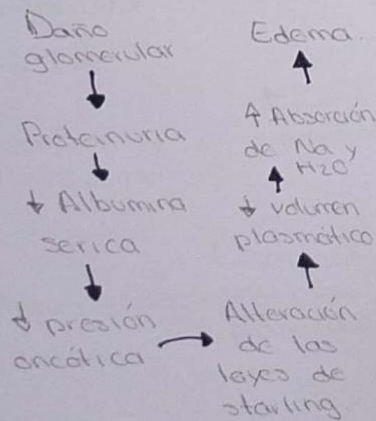 Daño
glomerular
Proteinuria
↓ Albumina
serica
↓ presión
oncótica
Alteración
de las
leyes de
starling
↓ volumen
plasmático
↑ Absorción
de Na y
H2O
Edema.